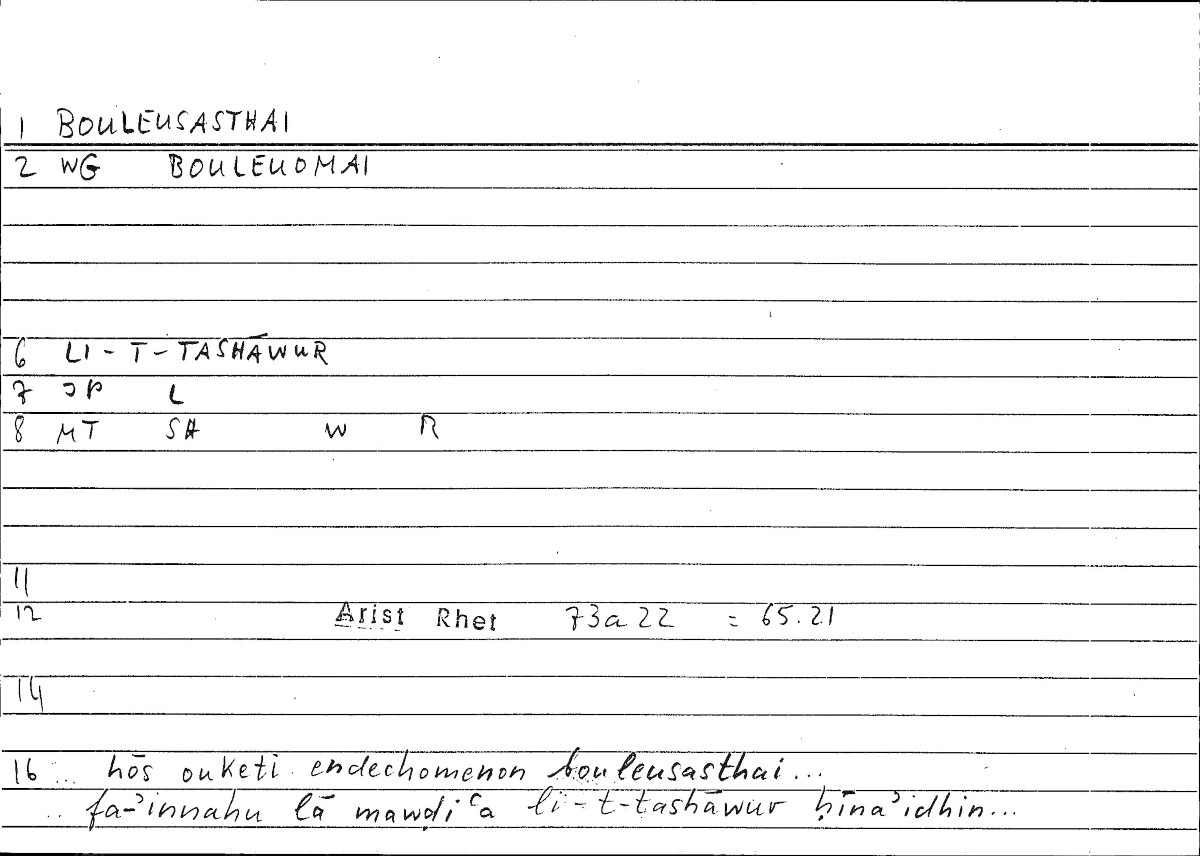 1 BOULEUSASTHAI
2 WG BOULEUOMAI
6 LI - T - TASHĀWUR
7 JP L
8 MT SH W R
11
12 Arist Rhet 73a22 = 65.21
14
16 ... hōs ouketi endechomenon bouleusasthai...
.. fa-ʾinnahu lā mawḍiʿa li-t-tashāwur ḥīnaʾidhin...